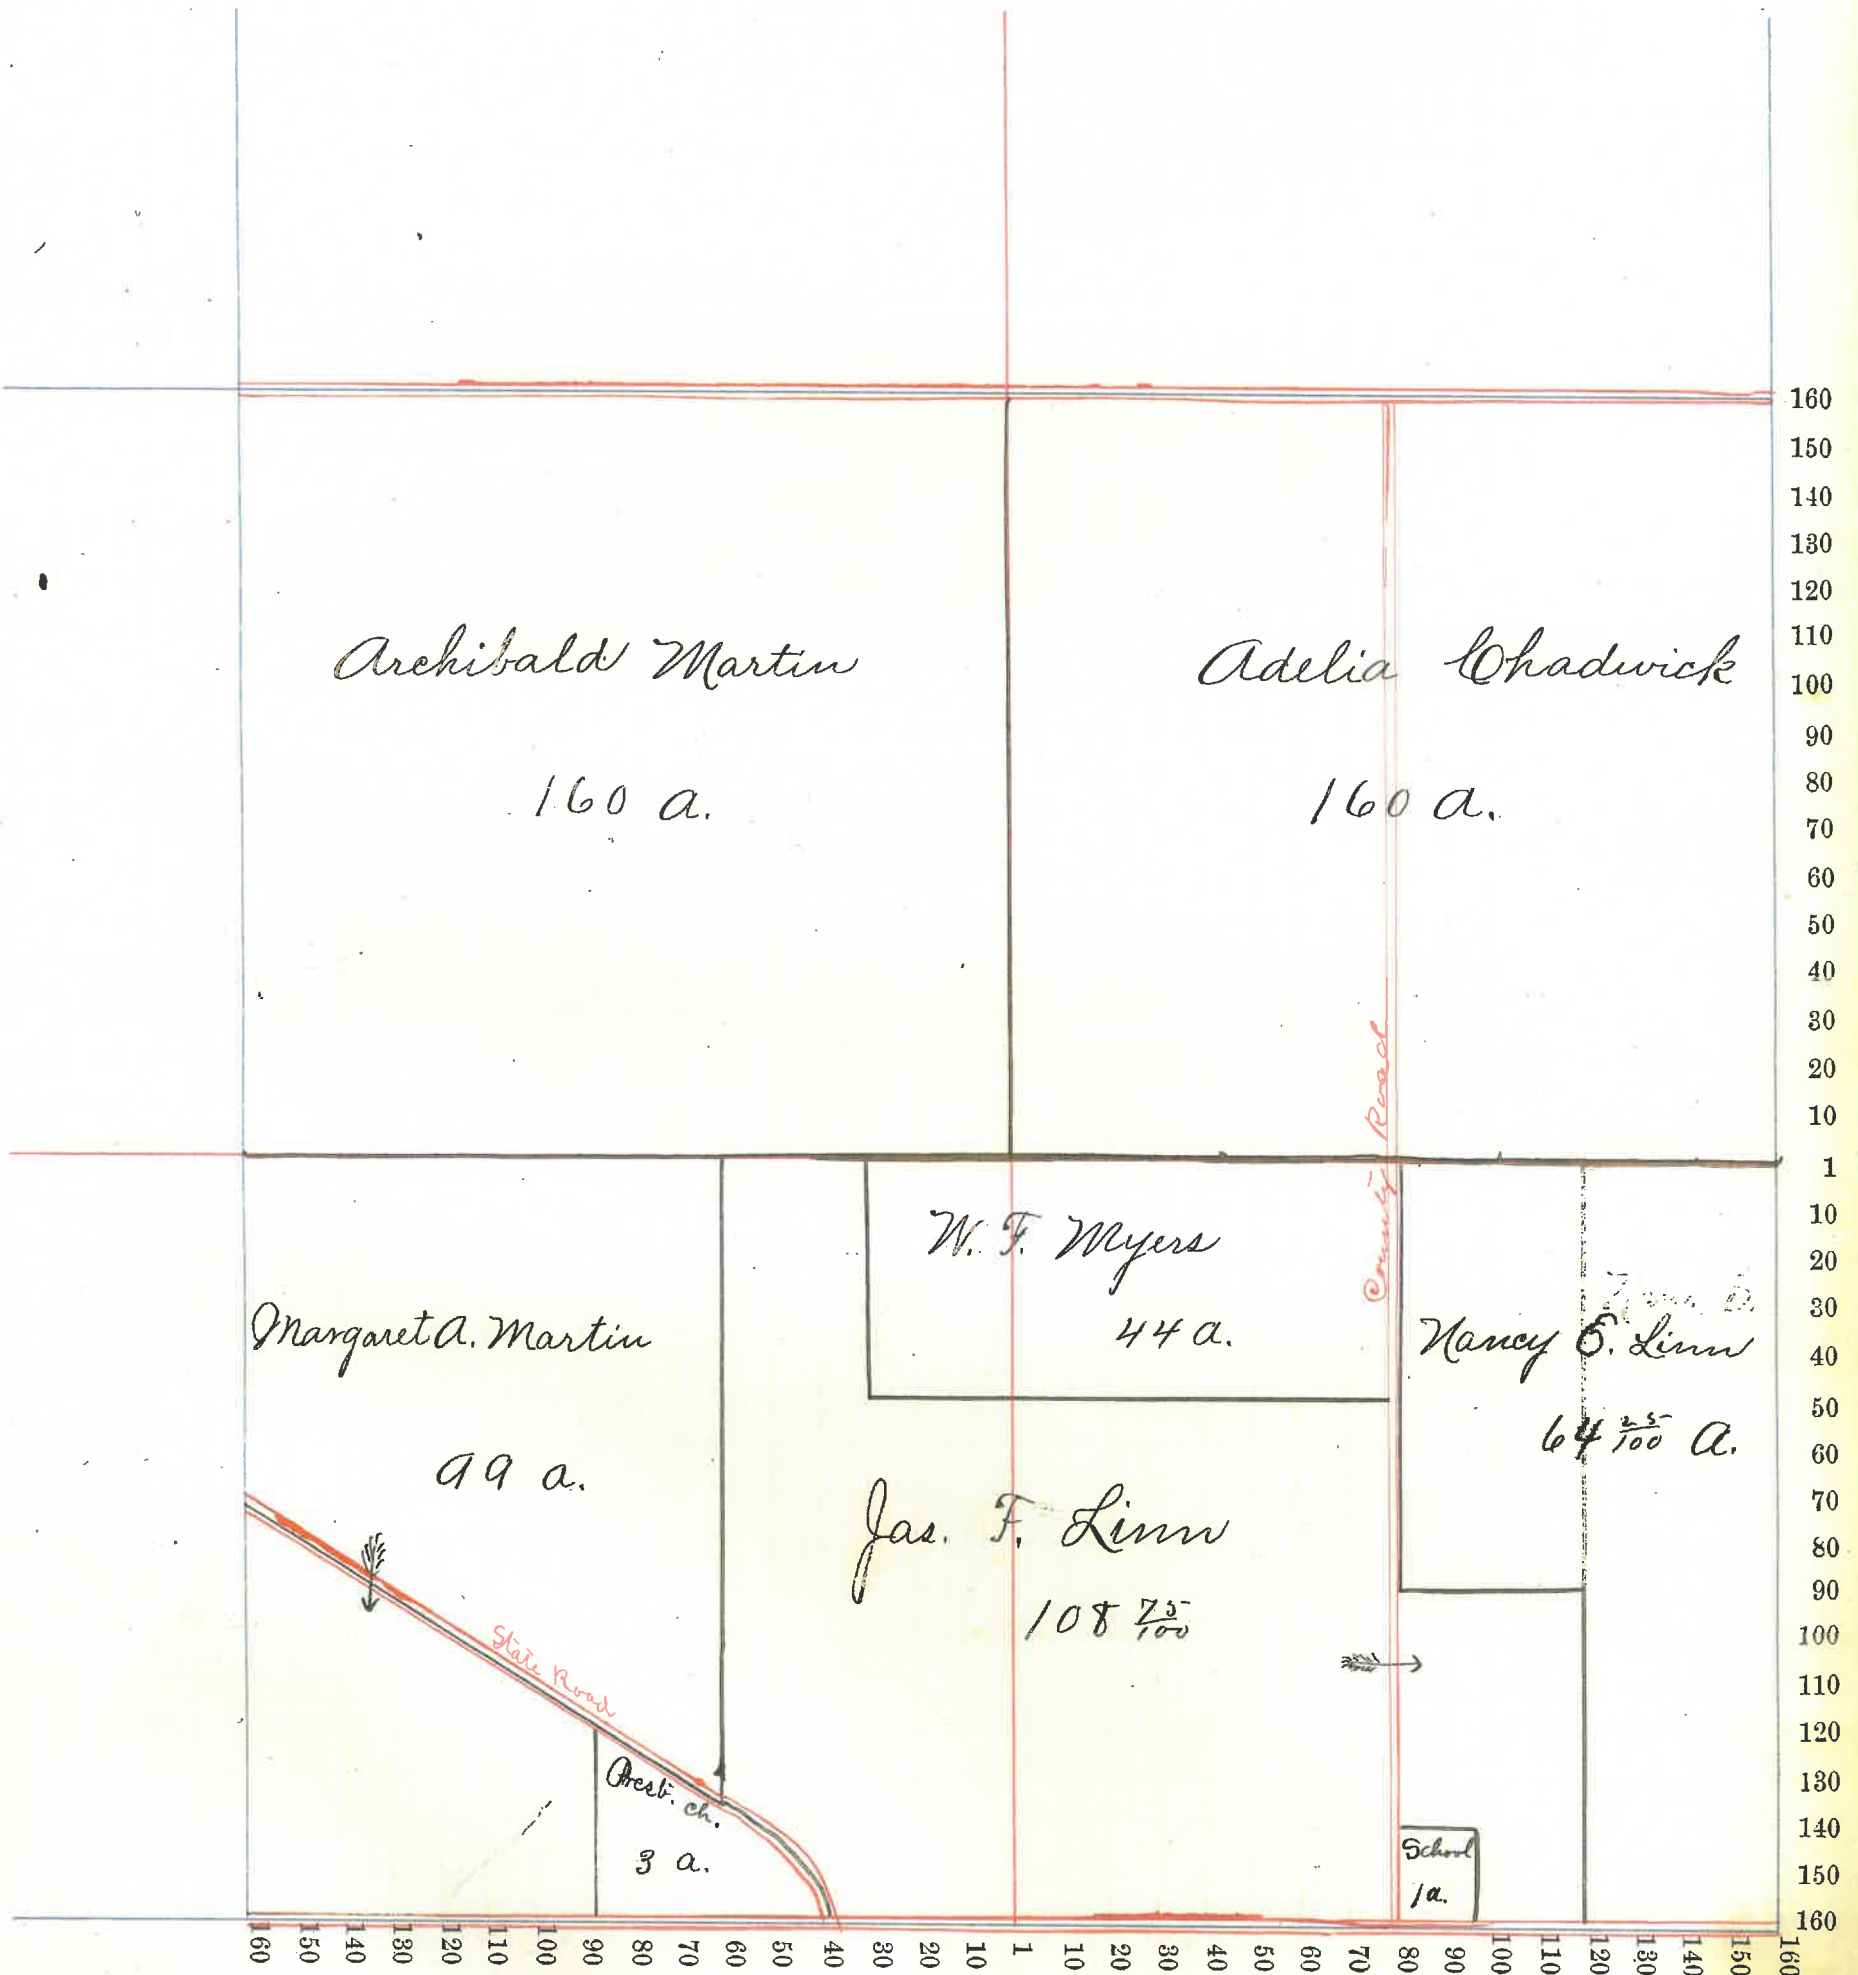 Archibald Martin
160 a.
Adelia Chadwick
160 a.
County Road
Margaret A. Martin
99 a.
W. F. Myers
44 a.
Nancy E. Linn
64 25/100 a.
Jas. F. Linn
108 75/100
State Road
Presb. ch.
3 a.
School
1a.
160
150
140
130
120
110
100
90
80
70
60
50
40
30
20
10
1
10
20
30
40
50
60
70
80
90
100
110
120
130
140
150
160
160 150 140 130 120 110 100 90 80 70 60 50 40 30 20 10 1 10 20 30 40 50 60 70 80 90 100 110 120 130 140 150 160